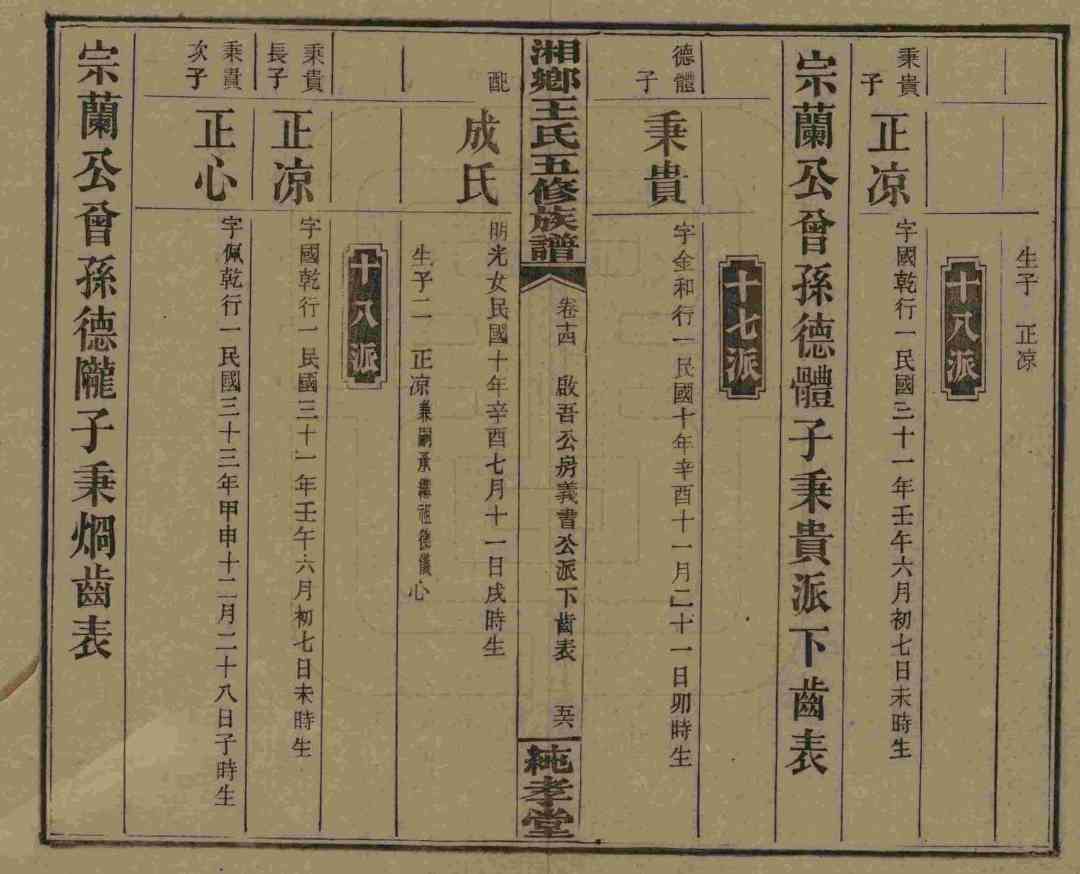 生子 正凉
十八派
秉貴子
正凉
字國乾行一民國三十一年壬午六月初七日未時生
宗蘭公曾孫德體子秉貴派下齒表
十七派
德體子
秉貴
字金和行一民國十年辛酉十一月二十一日卯時生
湘鄉王氏五修族譜
卷十四 啟吾公房義書公派下齒表 五六
純孝堂
配
成氏
明光女民國十年辛酉七月十一日戌時生
生子二 正凉兼嗣承繼祖德儀 心
十八派
秉貴長子
正凉
字國乾行一民國三十一年壬午六月初七日未時生
秉貴次子
正心
字佩乾行一民國三十三年甲申十二月二十八日子時生
宗蘭公曾孫德隴子秉烱齒表